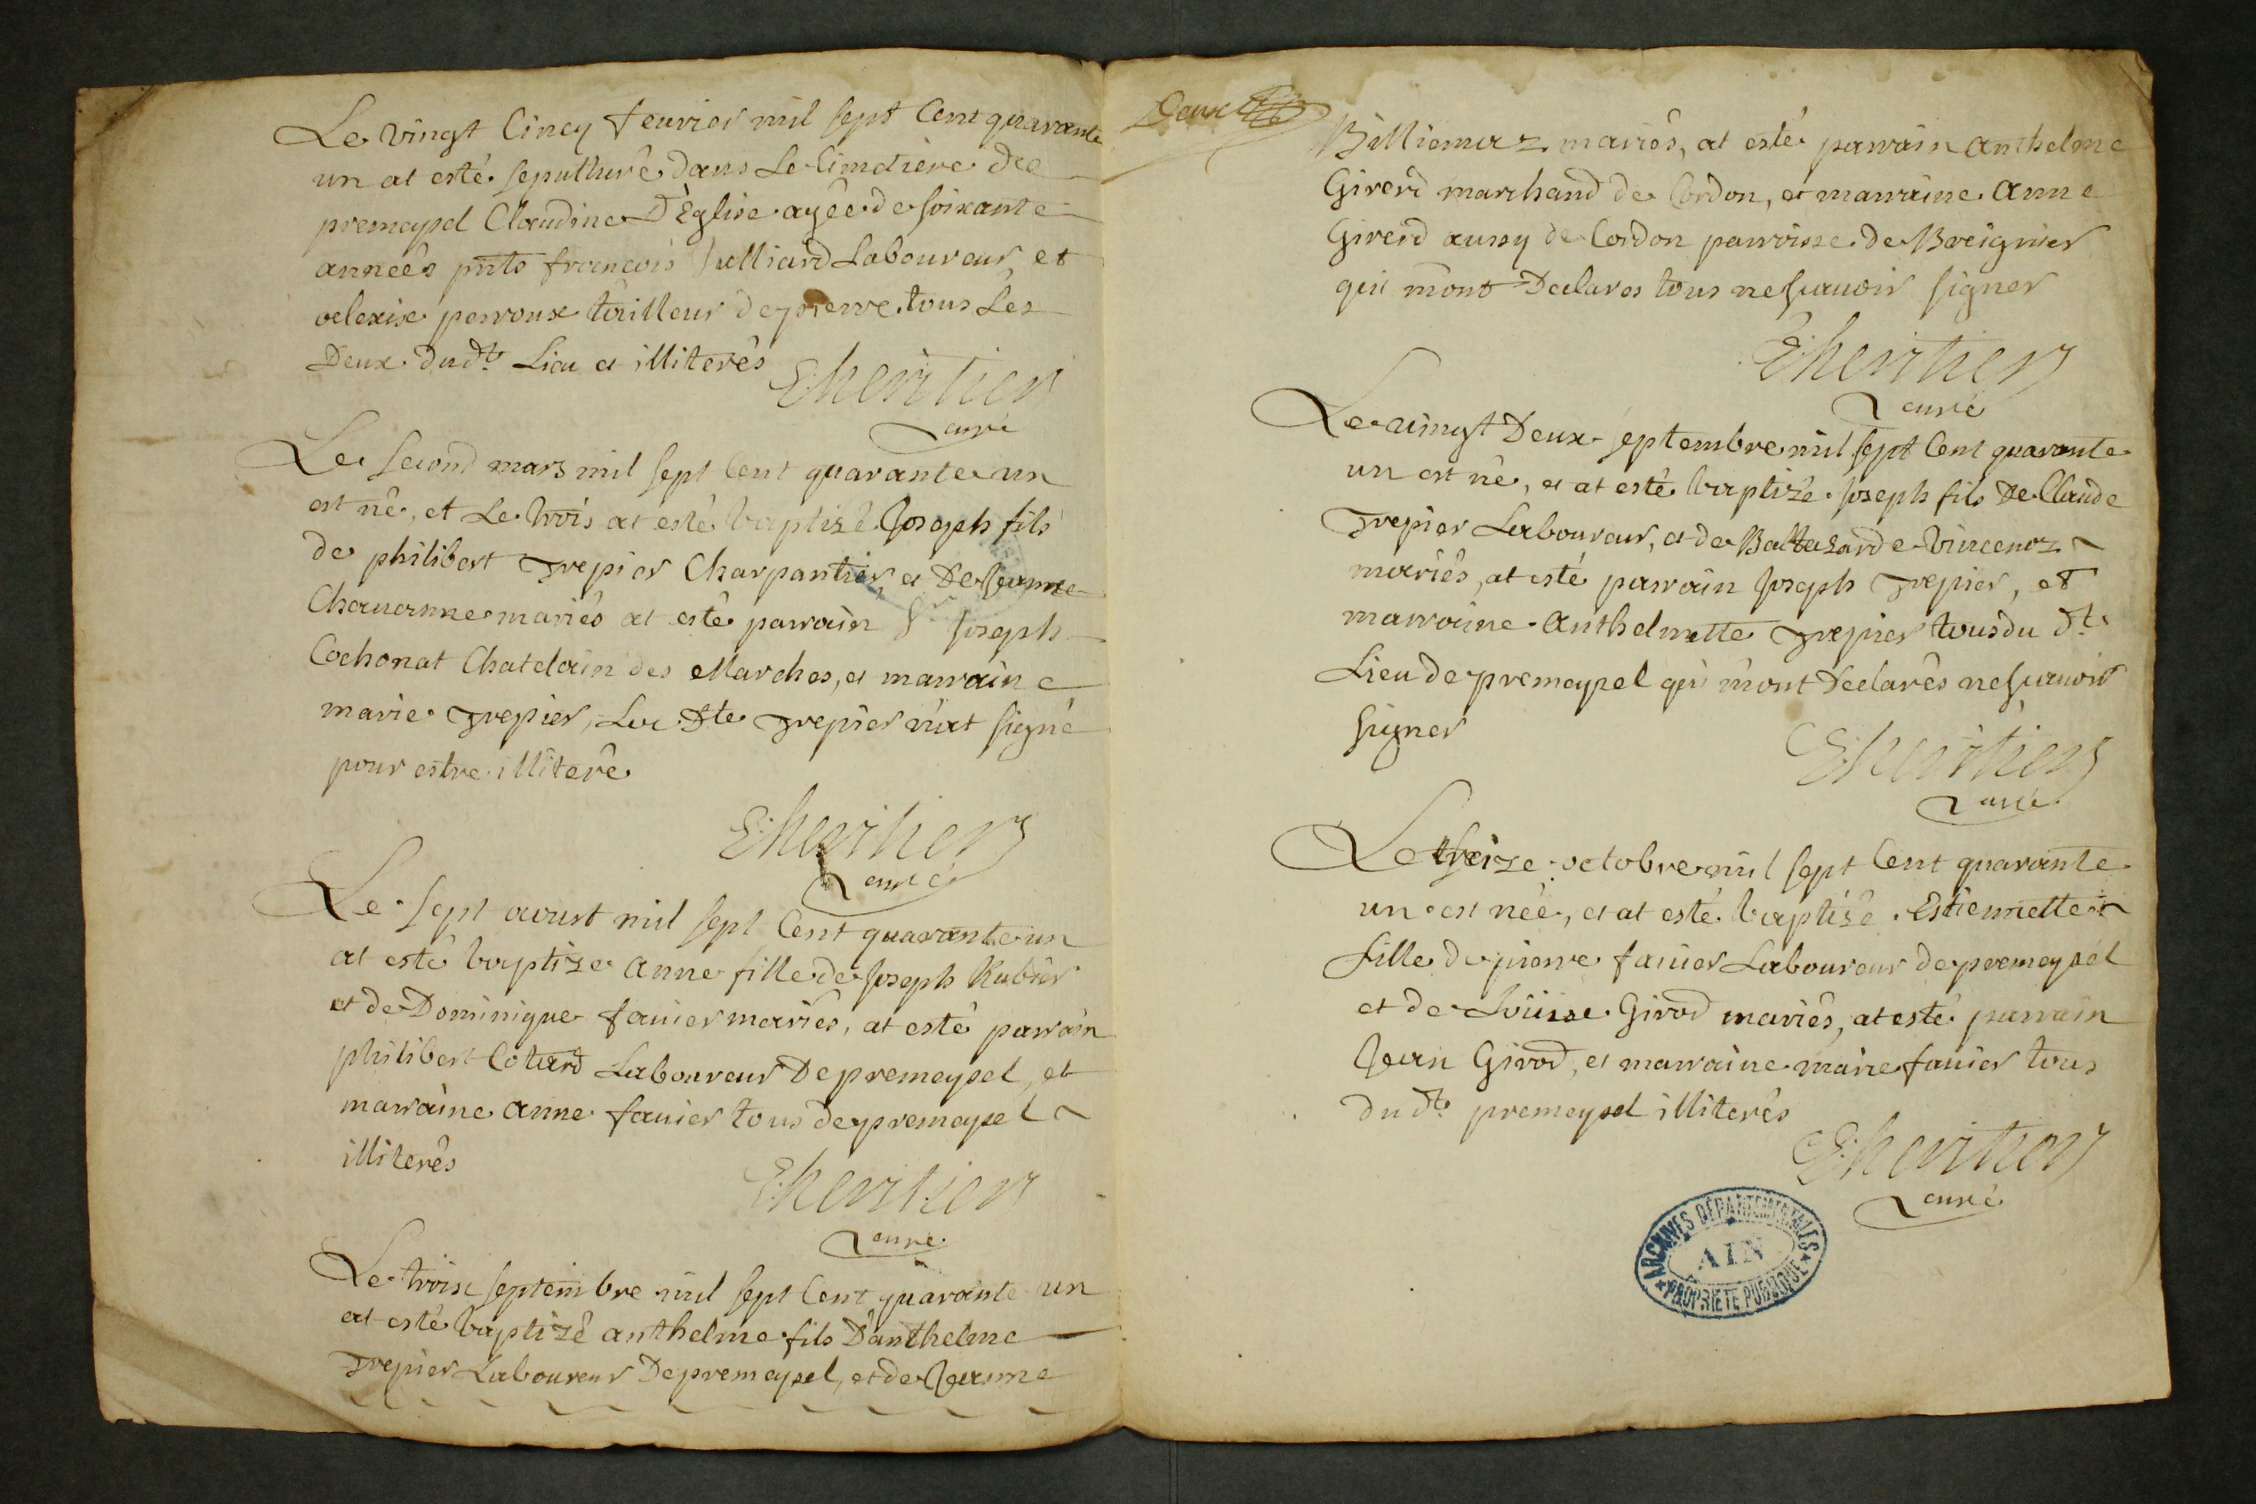 Le vingt Cincq feuvier mil sept Cent quarante
un at esté sepulturé dans Le Cimetiere de
premeysel Claudine D'Eglise agéé de soixante
années pnts françois Julliard Laboureur et
alexise perroux tailleur de pierre tous Les
Deux dudt Lieu et illiterés
Lheritier
curé
Le second mars mil sept Cent quarante un
est né, et Le trois at esté baptisé Joseph fils
de philibert Trepier Charpantier, et De Jeanne
Chavanne mariés at esté parrain Sr Joseph
Cochonat Chatelain des Marches, et marraine
marie Trepier, La dte Trepier n'at signé
pour estre illiteré
Lheritier
curé
Le sept aoust mil sept Cent quarante un
at esté baptize anne fille de Joseph Rubier
et de Dominique favier mariés, at esté parrain
philibert Cotard Laboureur De premeysel, et
marraine anne favier tous de premeysel
illiterés
Lheritier
curé
Le troix septembre mil sept Cent quarante un
at esté baptizé anthelme fils D'anthelme
Trepier Laboureur De premeysel, et de Jeanne
Deux
Billiemaz mariés, at esté parrain anthelme
Girerd marchand de Cordon, et marraine anne
Girerd aussy de Cordon parroisse de Breignier
qui m'ont Declarés tous ne sçauoir signer
Lheritier
curé
Le vingt Deux septembre mil sept Cent quarante
un est né, et at esté baptizé Joseph fils De Claude
Trepier Laboureur, et de Baltazarde Vincenoz
mariés, at esté parrain Joseph Trepier, et
marraine Anthelmette Trepier tous du dt
Lieu de premeysel qui m'ont Declarés ne sçauoir
signer
Lheritier
curé
Le treize octobre mil sept Cent quarante
un est néé, et at esté baptisé Estiennette
fille de pierre favier Laboureur de premeysel
et de Loüise Girod mariés, at esté parrain
Jean Girod, et marraine marie favier tous
du dt premeysel illiterés
Lheritier
curé
ARCHIVES DÉPARTEMENTALES
AIN
PROPRIÉTÉ PUBLIQUE